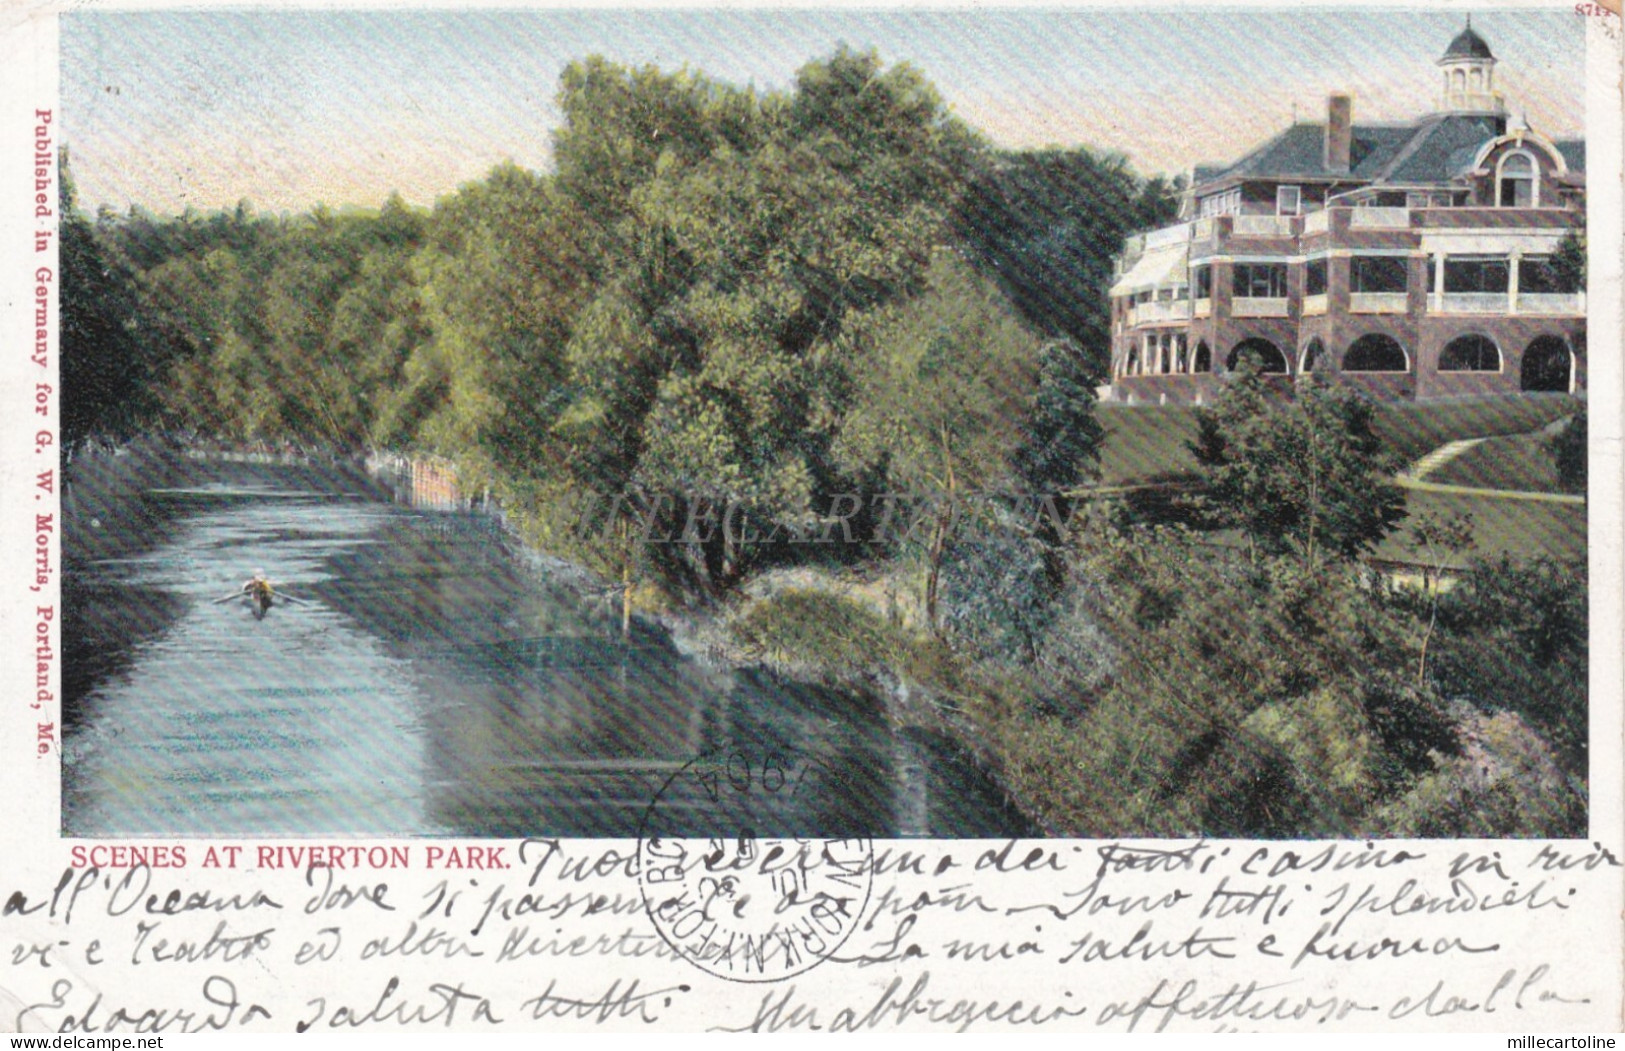 8714
Published in Germany for G. W. Morris, Portland, Me.
MILLECARTOLINE
SCENES AT RIVERTON PARK.
Puoi vedere uno dei tanti casino in riv
all'Oceano dove si passano le ore pom Sono tutti splendidi
vi è Teatro ed altri divertimenti La mia salute è buona
Edoardo saluta tutti Un abbraccio affettuoso dalla
1904
NEW YORK, N.Y. FOR. BCH.
millecartoline
www.delcampe.net